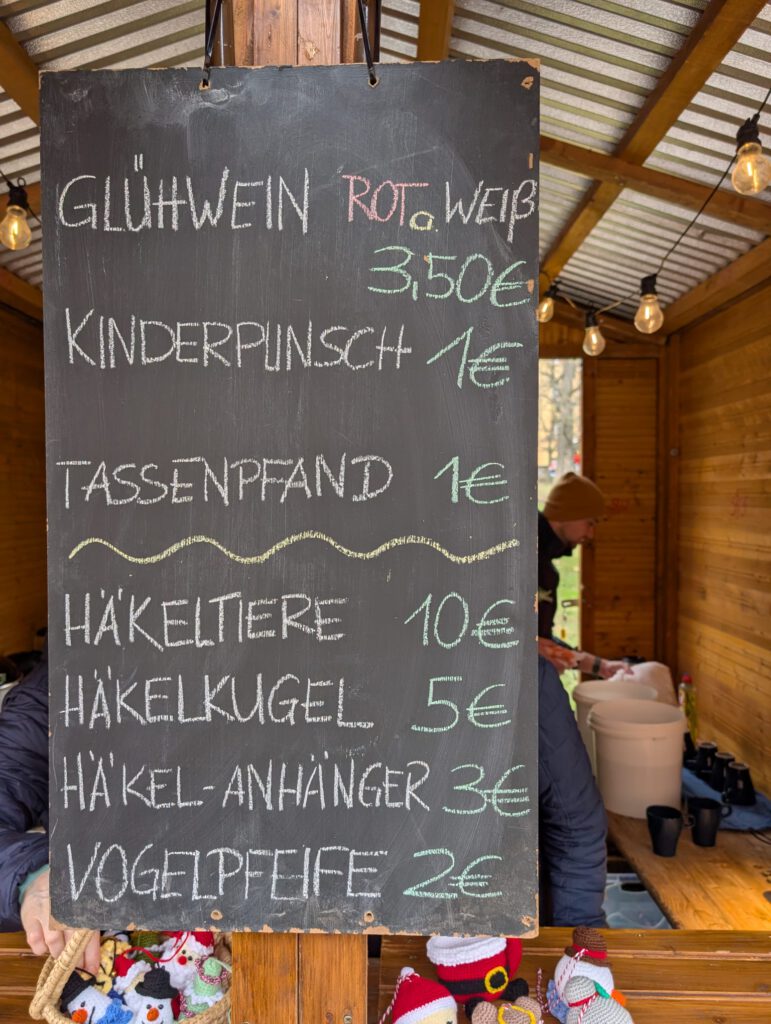 GLÜHWEIN ROT o. WEIß
3,50€
KINDERPUNSCH 1€
TASSENPFAND 1€
HÄKELTIERE 10€
HÄKELKUGEL 5€
HÄKEL-ANHÄNGER 3€
VOGELPFEIFE 2€